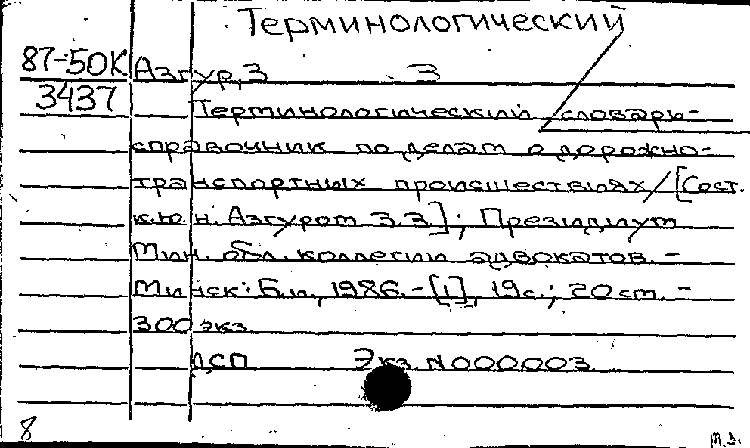 Терминологический
87-50К Азгур, З З
3437 Терминологический словарь-
справочник по делам о дорожно-
транспортных происшествиях/[Сост.
к.ю.н. Азгуром З.З.]; Президиум
Мин. обл. коллегии адвокатов. -
Минск: Б.и, 1986. - [1], 19с.; 20 см. -
300 экз.
ДСП Экз. N000003
8